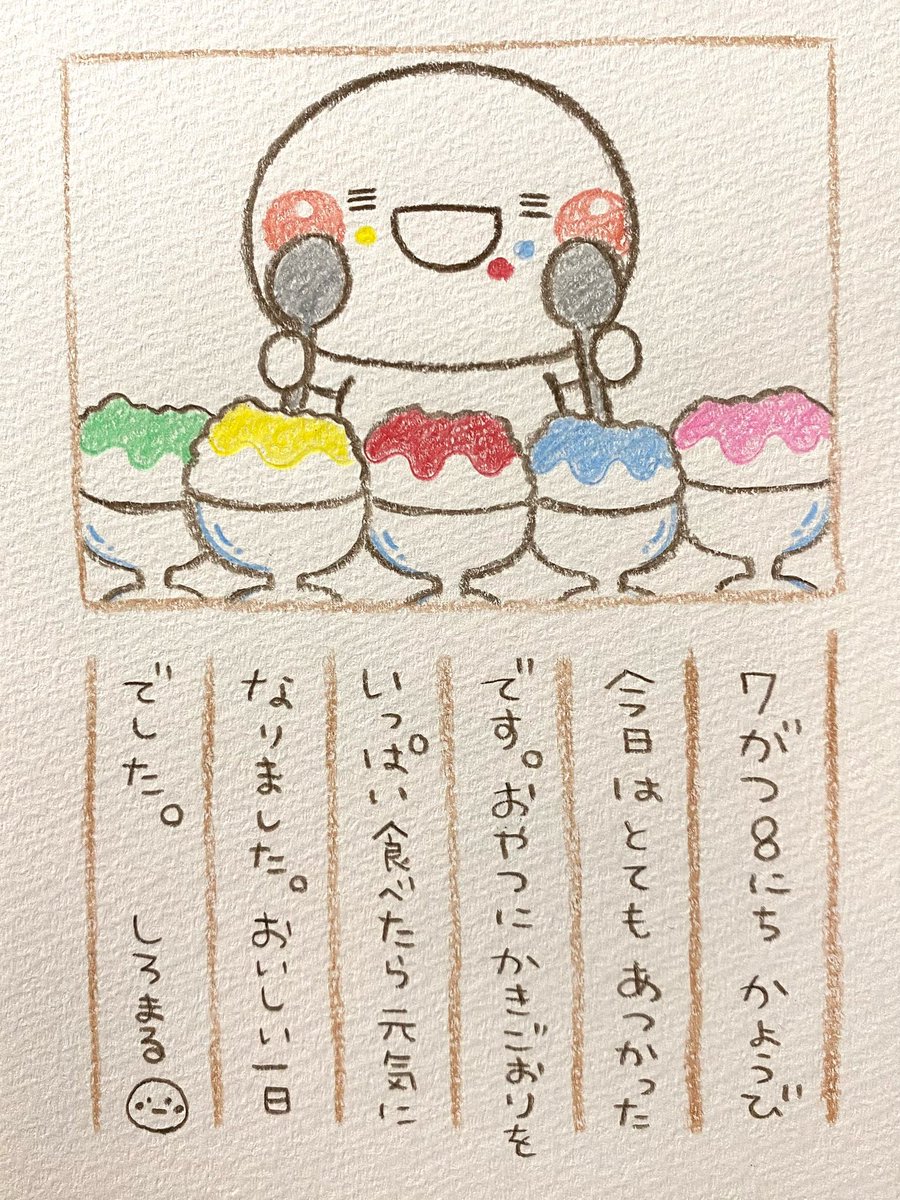 7がつ8にち かようび
今日はとてもあつかった
です。おやつにかきごおりを
いっぱい食べたら元気に
なりました。おいしい一日
でした。 しろまる